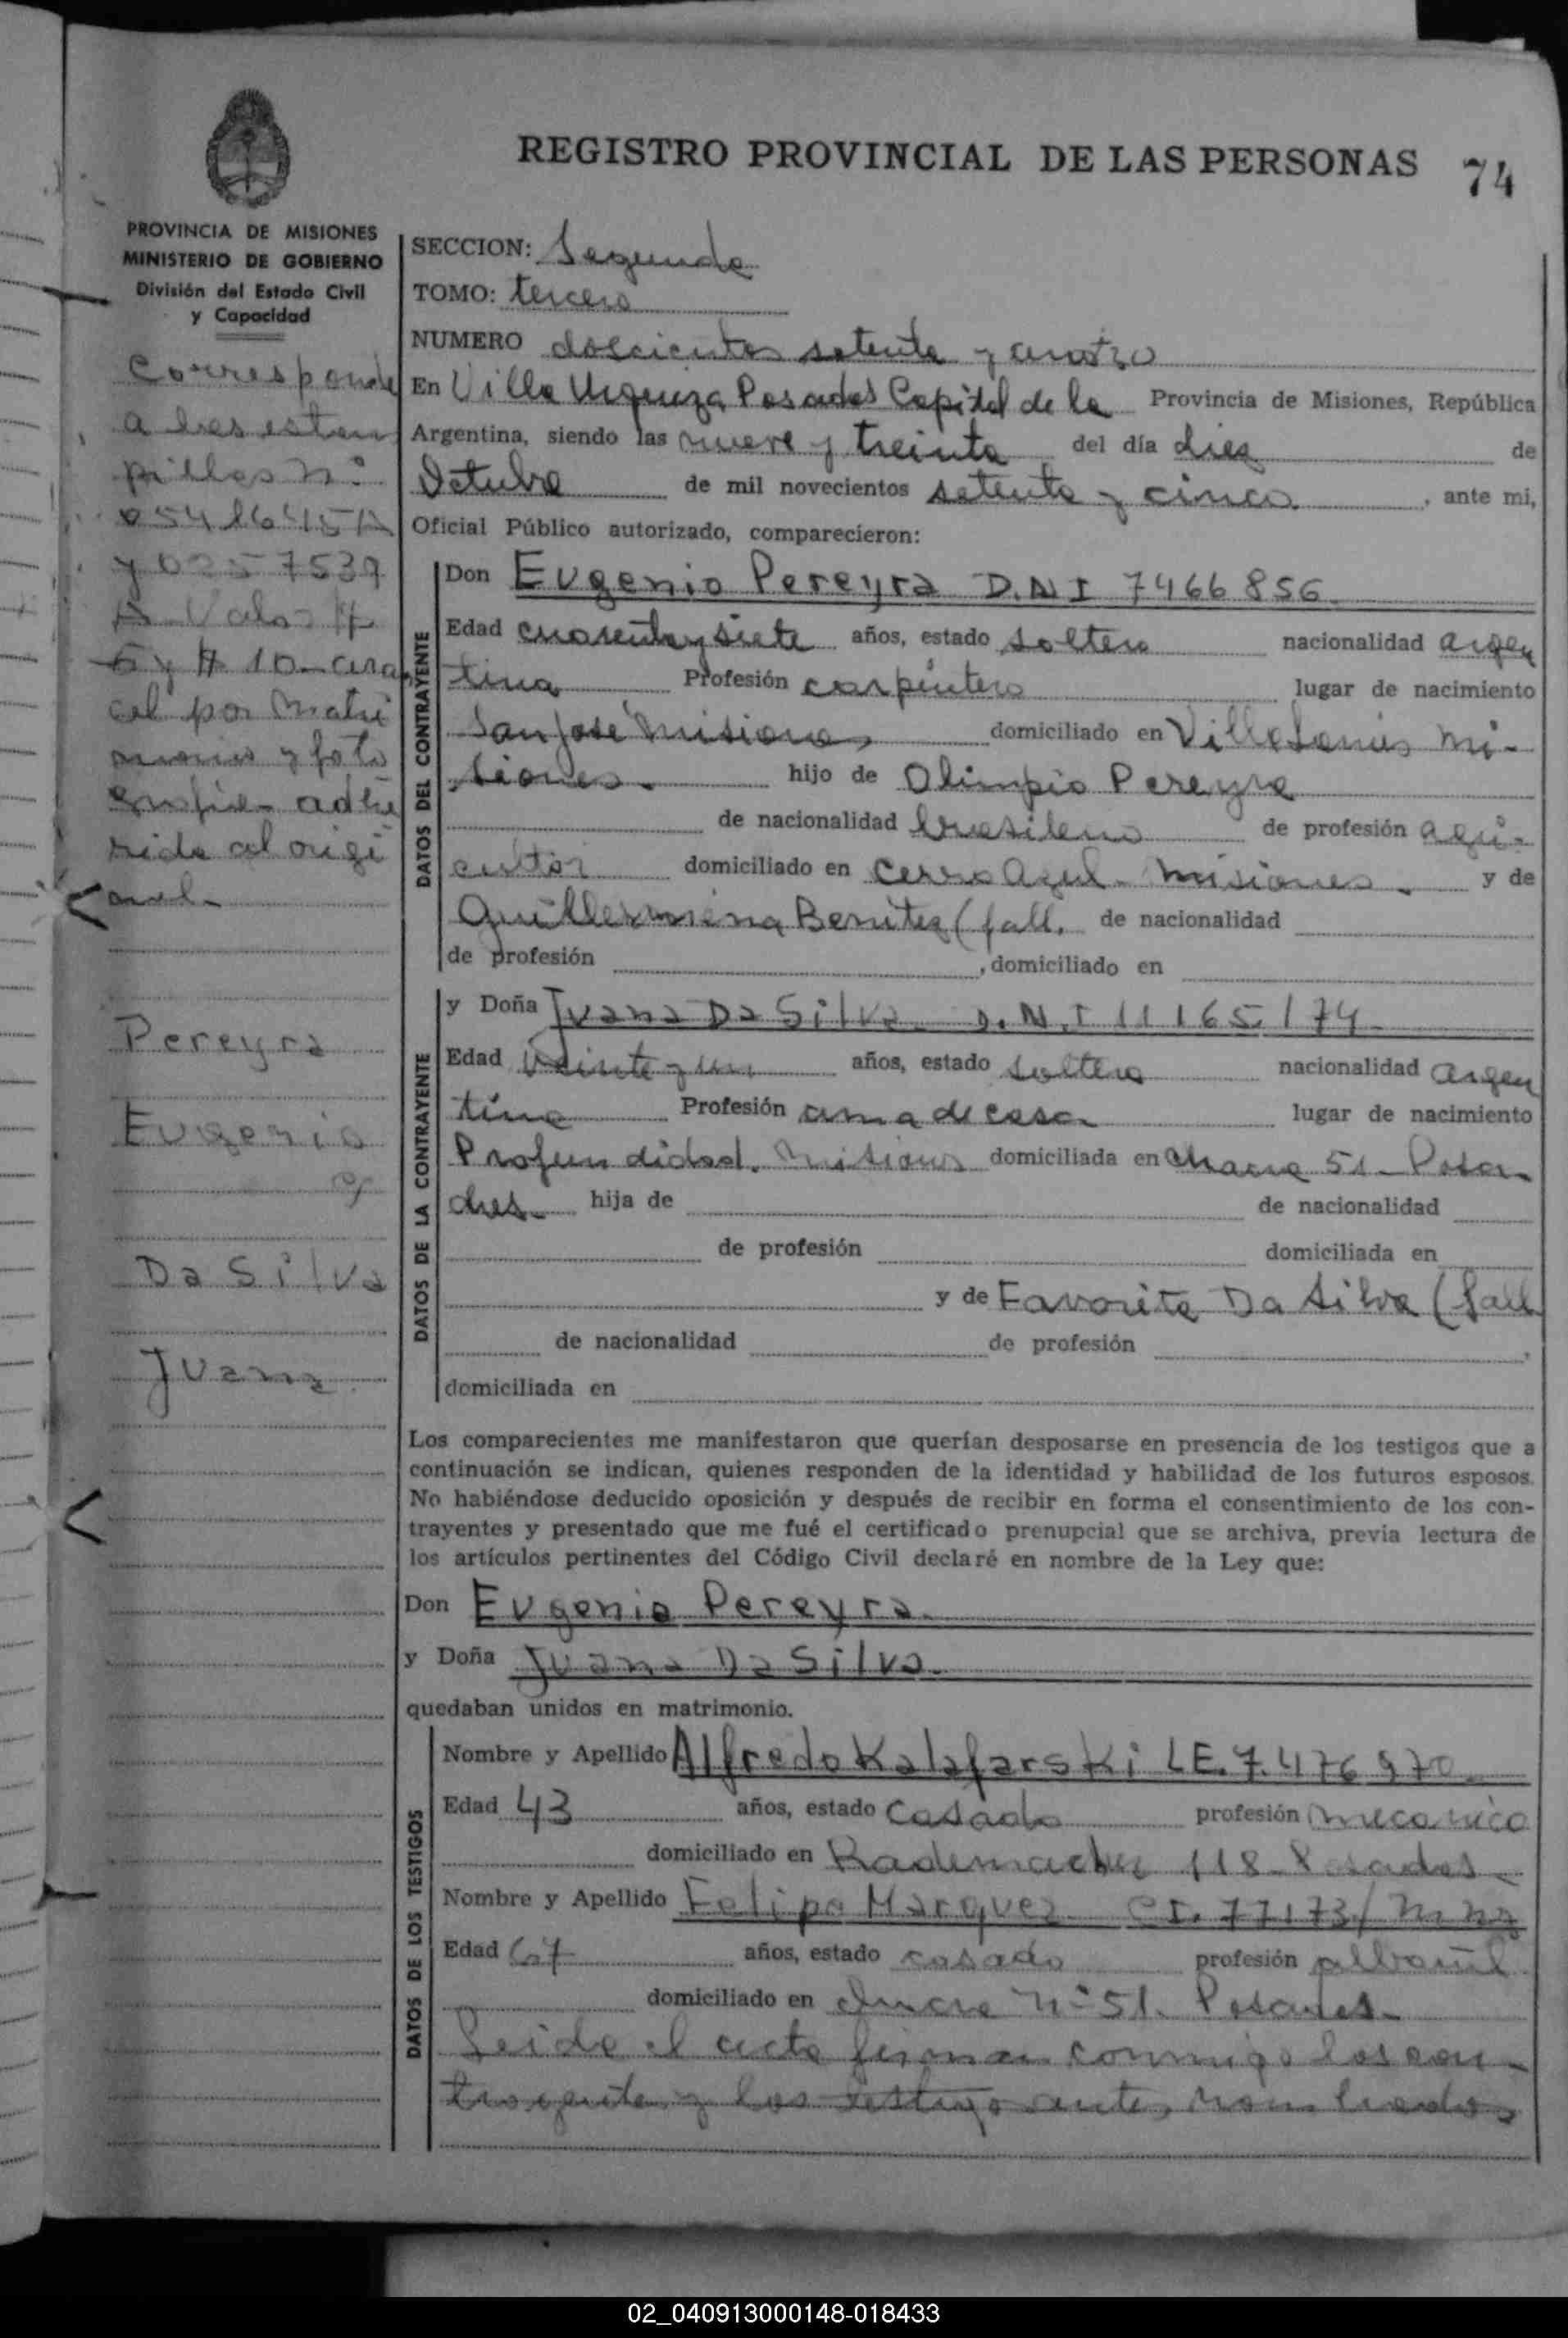 REGISTRO PROVINCIAL DE LAS PERSONAS 74
PROVINCIA DE MISIONES
MINISTERIO DE GOBIERNO
División del Estado Civil
y Capacidad
Corresponde
a las estam
pillas nº
05486451A
y 0257539
A Valor $
5 y $ 10- aran
cel por matri
monio y foto
grafia adhe
rida al origi
nal-
Pereyra
Eugenio
c/
Da Silva
Juana
SECCION: Segunda
TOMO: tercero
NUMERO doscientos setenta y cuatro
En Villa Urquiza Posadas Capital de la Provincia de Misiones, República
Argentina, siendo las nueve y treinta del día diez de
Octubre de mil novecientos setenta y cinco, ante mi,
Oficial Público autorizado, comparecieron:
DATOS DEL CONTRAYENTE
Don Eugenio Pereyra D.N.I 7466856
Edad cuarenta y siete años, estado soltero nacionalidad argen
tina Profesión carpintero lugar de nacimiento
San José Misiones domiciliado en Villa Lanús Mi-
siones. hijo de Olimpio Pereyra
de nacionalidad brasileno de profesión agri-
cultor domiciliado en Cerro Azul- Misiones- y de
Guillermina Benitez (fall. de nacionalidad
de profesión , domiciliado en
DATOS DE LA CONTRAYENTE
y Doña Juana Da Silva D.N.I 11165.174
Edad Veinte y un años, estado soltera nacionalidad argen
tina Profesión ama de casa lugar de nacimiento
Profundidad. Misiones domiciliada en Chacra 51- Posa
das- hija de de nacionalidad
de profesión domiciliada en
y de Favorita Da Silva (fall
de nacionalidad de profesión ,
domiciliada en
Los comparecientes me manifestaron que querían desposarse en presencia de los testigos que a
continuación se indican, quienes responden de la identidad y habilidad de los futuros esposos.
No habiéndose deducido oposición y después de recibir en forma el consentimiento de los con-
trayentes y presentado que me fué el certificado prenupcial que se archiva, previa lectura de
los artículos pertinentes del Código Civil declaré en nombre de la Ley que:
Don Eugenio Pereyra.
y Doña Juana Da Silva.
quedaban unidos en matrimonio.
DATOS DE LOS TESTIGOS
Nombre y Apellido Alfredo Kalafarski LE. 7.476 970
Edad 43 años, estado casado profesión mecanico
domiciliado en Rademacher 118- Posadas-
Nombre y Apellido Felipe Marquez CI. 77173/
Edad 67 años, estado casado profesión albañil
domiciliado en Chacra nº 51. Posadas-
Leida el acta firman conmigo los con-
trayentes y los testigo antes nombrados
02_040913000148-018433